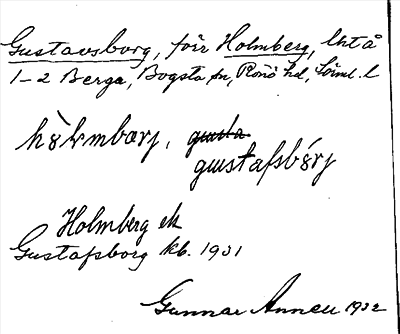 Gustavsborg, förr Holmberg, lht å
1–2 Berga, Bogsta sn, Rönö hd, Söml. l
hòlmbærj, gusta
gustafsbórj
Holmberg ek
Gustafsborg kb. 1931
Gunnar Annell 1932